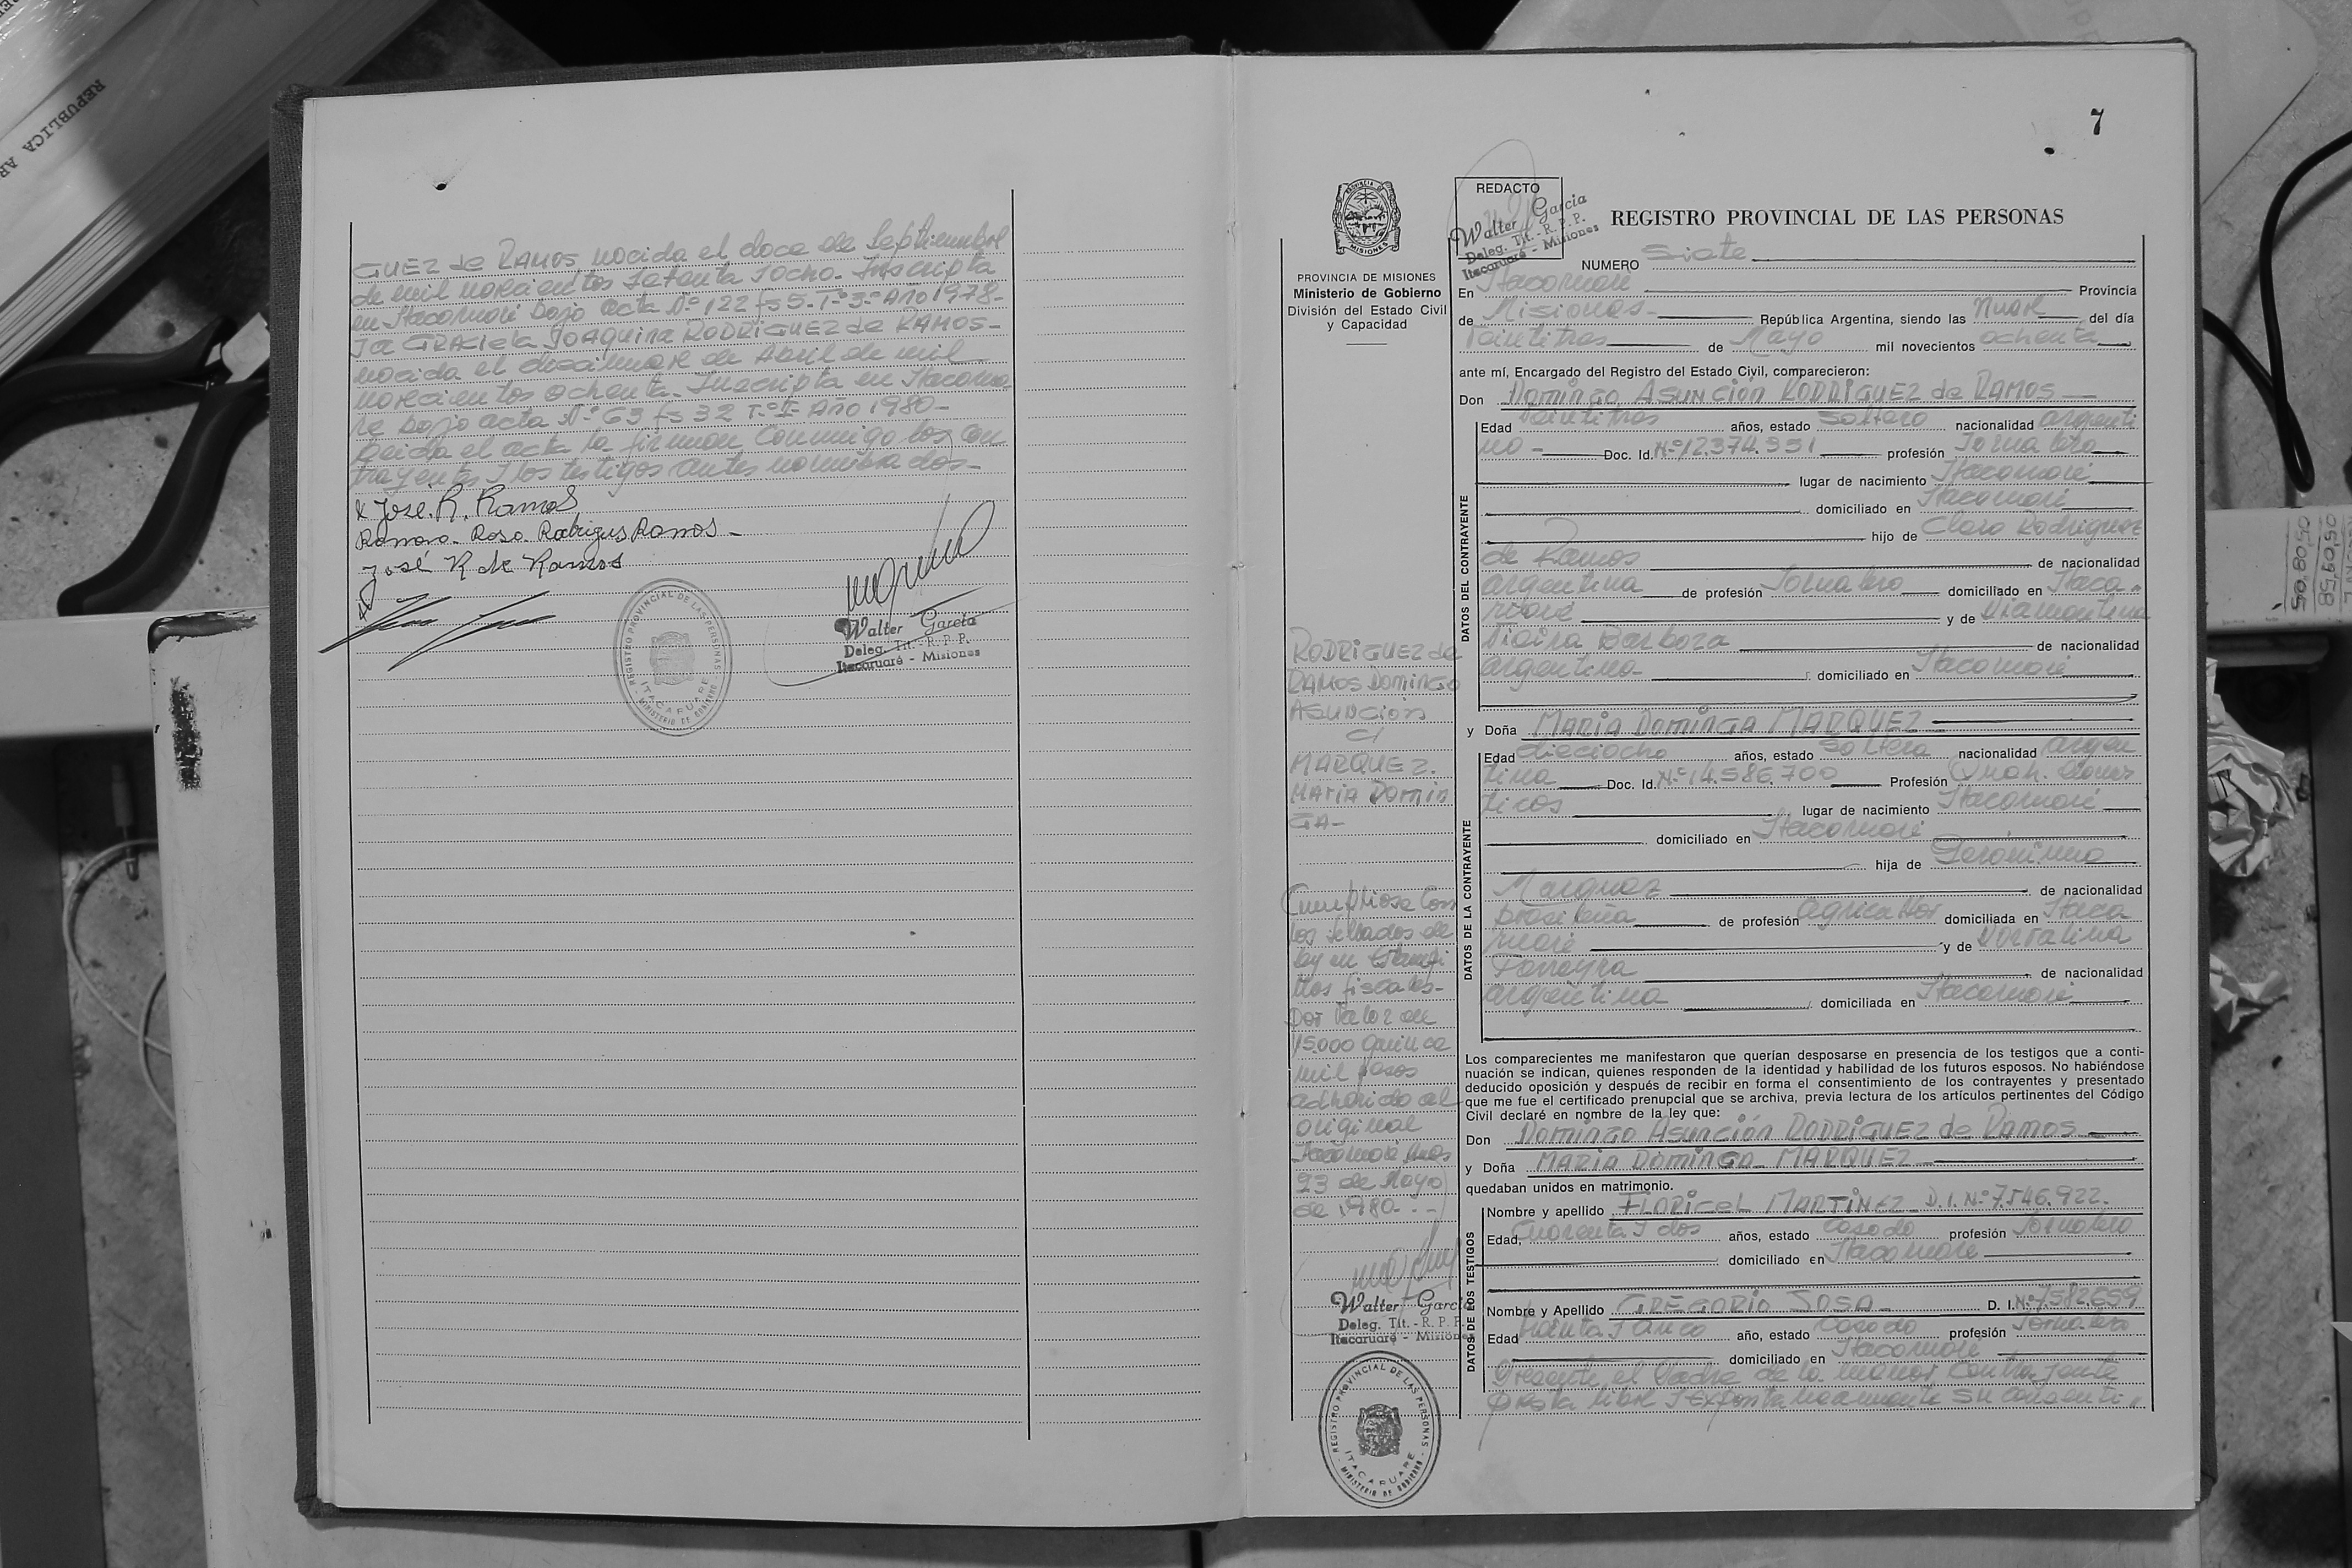 GUEZ de RAMOS nacida el doce de Septiembre
de mil novecientos Setenta Y ocho. Inscripta
en Itacaruaré bajo acta Nº 122 fs 5. Tº 3º Año 1978-
Ya GRACIELA JOAQUINA RODRIGUEZ de RAMOS-
nacida el diecinueve de Abril de mil
novecientos Ochenta. Inscripta en Itacarua
ré bajo acta Nº 63 fs 32 Tº I Año 1980-
Leida el acta la firman conmigo los con
trayentes Y los testigos antes nombrados-
x José. R. Ramos
Ramona. Rosa. Rodrigues Ramos-
José R de Ramos
Walter García
Deleg. Tit. - R. P. P.
Itacaruaré - Misiones
REGISTRO PROVINCIAL DE LAS PERSONAS
ITACARUARE
MINISTERIO DE GOBIERNO
REPUBLICA AR
7
PROVINCIA DE MISIONES
Ministerio de Gobierno
División del Estado Civil
y Capacidad
REDACTO
Walter García
Deleg. Tit. - R. P. P.
Itacaruaré - Misiones
REGISTRO PROVINCIAL DE LAS PERSONAS
NUMERO Siete
En Itacaruaré Provincia
de Misiones- República Argentina, siendo las Nueve del día
Veintitres de Mayo mil novecientos ochenta
ante mí, Encargado del Registro del Estado Civil, comparecieron:
Don Domingo Asunción RODRIGUEZ de RAMOS
DATOS DEL CONTRAYENTE
Edad Veintitres años, estado Soltero nacionalidad argenti
no- Doc. Id. Nº 12.374.931 profesión Jornalero
lugar de nacimiento Itacaruaré
domiciliado en Itacaruaré
hijo de Claro Rodriguez
de Ramos de nacionalidad
argentina de profesión Jornalero domiciliado en Itaca-
ruaré y de Diamantina
Vieira Barboza de nacionalidad
argentina- domiciliado en Itacaruaré
y Doña MARIA DOMINGA MARQUEZ
DATOS DE LA CONTRAYENTE
Edad dieciocho años, estado Soltera nacionalidad argen
tina Doc. Id. Nº 14.586.700 Profesión Queh. domes
ticos lugar de nacimiento Itacaruaré
domiciliado en Itacaruaré
hija de Gerónimo
Marquez de nacionalidad
brasileña de profesión agricultor domiciliada en Itaca
ruaré y de
Ferreyra de nacionalidad
argentina domiciliada en Itacaruaré
Los comparecientes me manifestaron que querían desposarse en presencia de los testigos que a conti-
nuación se indican, quienes responden de la identidad y habilidad de los futuros esposos. No habiéndose
deducido oposición y después de recibir en forma el consentimiento de los contrayentes y presentado
que me fue el certificado prenupcial que se archiva, previa lectura de los artículos pertinentes del Código
Civil declaré en nombre de la ley que:
Don Domingo Asunción RODRIGUEZ de Ramos
y Doña MARIA DOMINGA MARQUEZ
quedaban unidos en matrimonio.
DATOS DE LOS TESTIGOS
Nombre y apellido FLORICEL MARTINEZ D.I. Nº 7.546.922.
Edad, Cuarenta Y dos años, estado Casado profesión Jornalero
domiciliado en Itacaruaré
Nombre y Apellido GREGORIO SOSA- D. I. Nº 7.582.659
Edad treinta Y cinco años, estado Casado profesión Jornalero
domiciliado en Itacaruaré
Presente el Padre de la menor contrayente
presta libre Y expontaneamente su consenti,
RODRIGUEZ de
RAMOS DOMINGO
ASUNCION
C/
MARQUEZ.
MARIA DOMIN
GA-
Cumpliose con
los sellados de
ley en Estampi
llas fiscales-
Por valor de
15.000 quince
mil pesos
adherido al
original
Itacaruaré Mnes
23 de Mayo
de 1980---
Walter García
Deleg. Tit. - R. P. P.
Itacaruaré - Misiones
REGISTRO PROVINCIAL DE LAS PERSONAS
ITACARUARE
MINISTERIO DE GOBIERNO